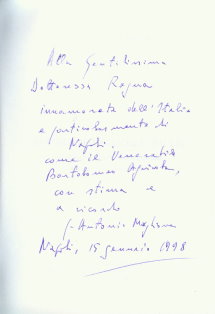 Alla Gentilissima
Dottoressa Regina
innamorata dell'Italia
e particolarmente di
Napoli.
come il Venerabile
Bartolomeo
con stima e
a ricordo
Antonio
Napoli, 15 gennaio 1998